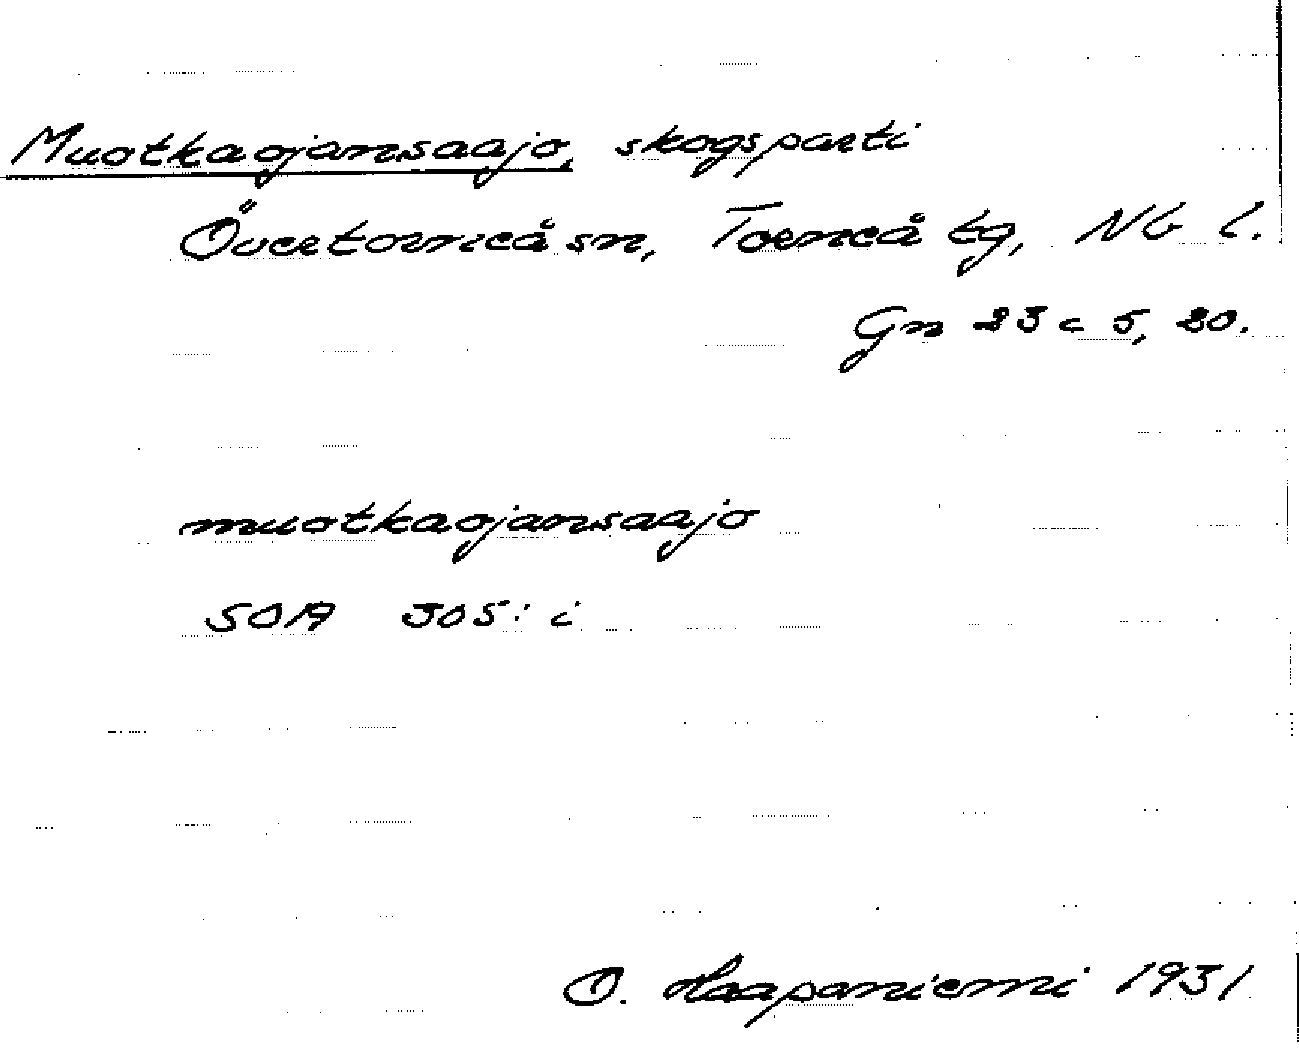 Muotkaojansaajo, skogsparti
Övertorneå sn, Torneå tg, Nb l.
Gn 23 c 5, 20.
muotkaojansaajo
SOA 305: i
O. Haapaniemi 1931